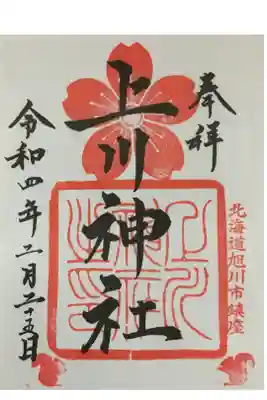 奉拝
上川神社
令和四年二月二十五日
北海道旭川市鎮座